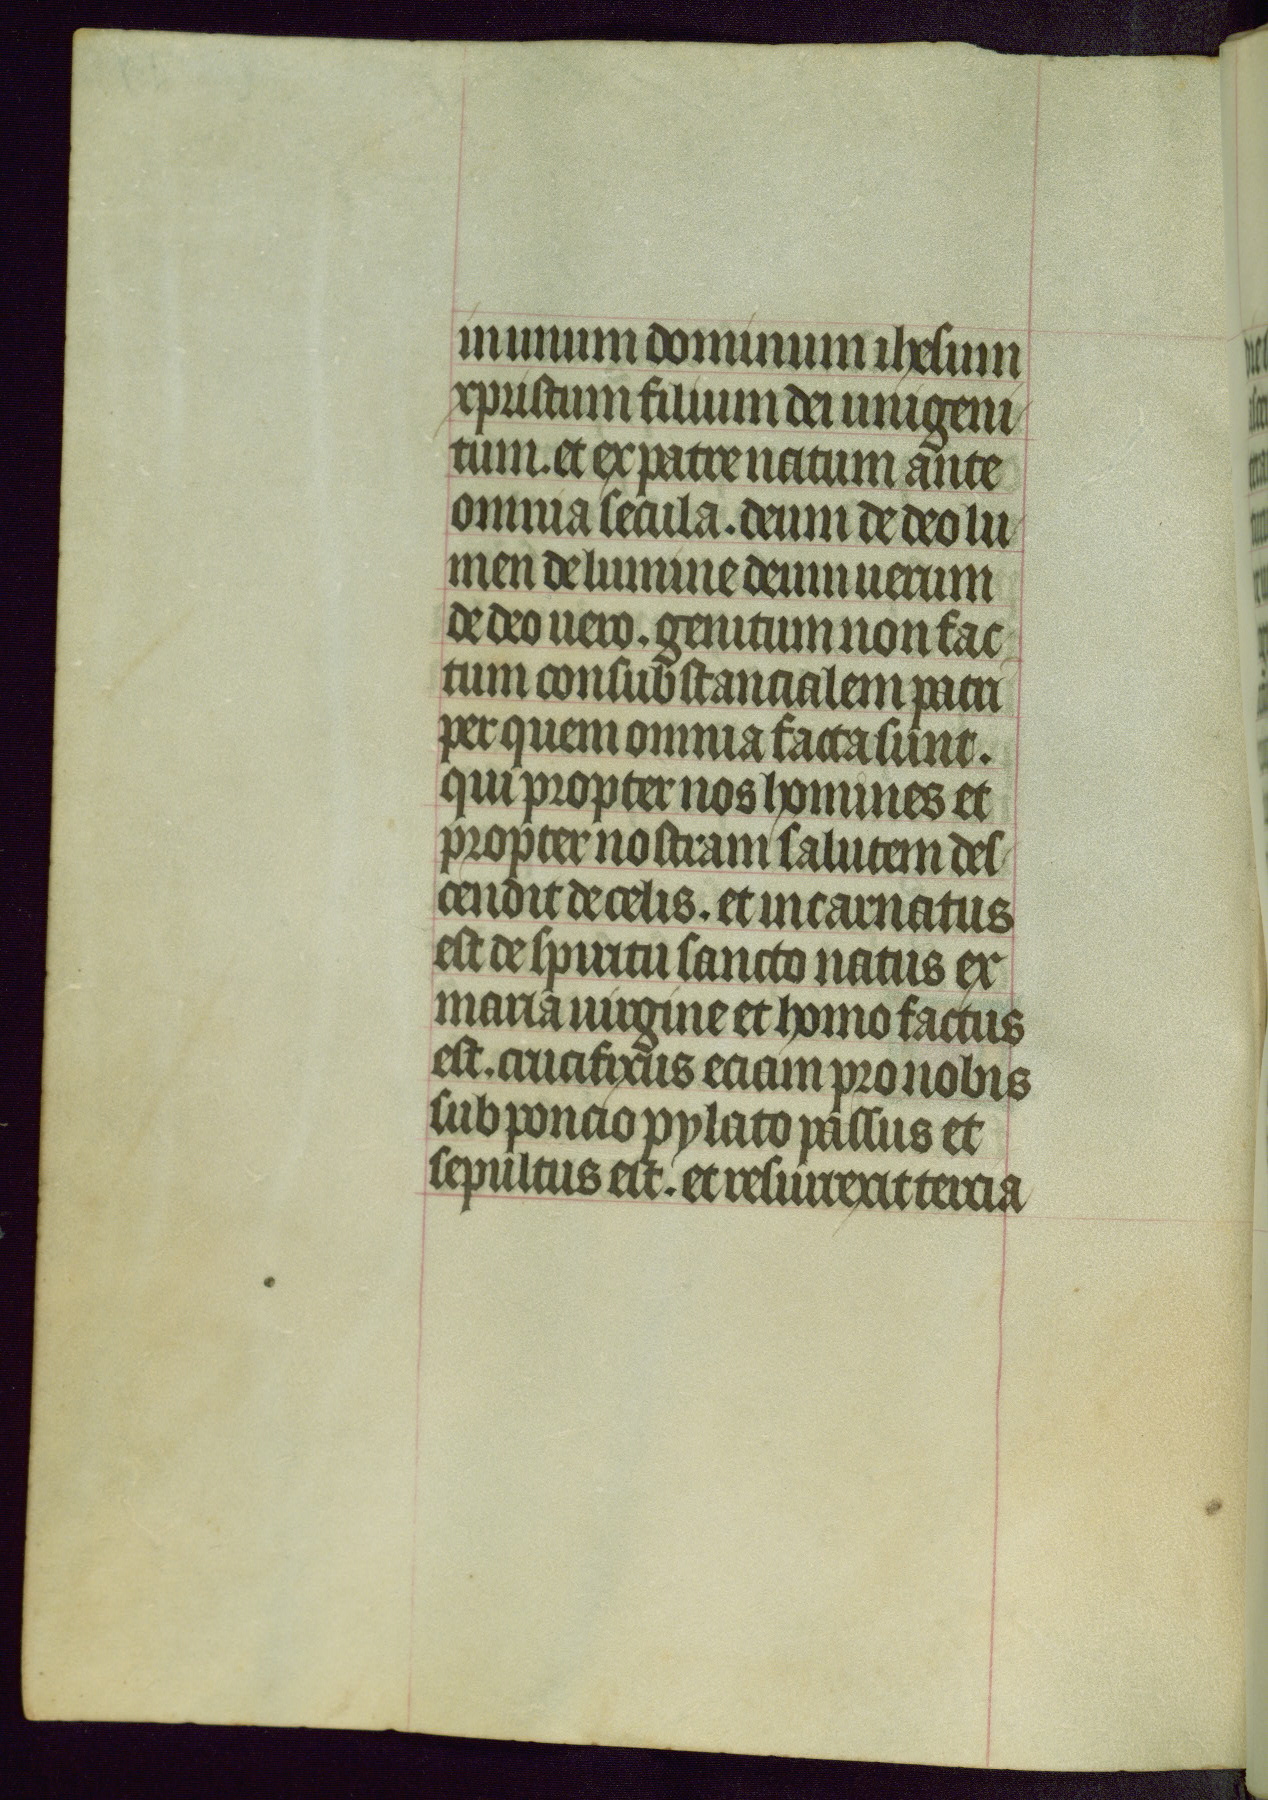 in unum dominum ihesum
xpristum filium dei unigeni
tum. et ex patre natum ante
omnia secula. deum de deo lu
men de lumine deum uerum
de deo uero. genitum non fac
tum consubstancialem patri
per quem omnia facta sunt.
qui propter nos homines et
propter nostram salutem des
cendit de celis. et incarnatus
est de spiritu sancto natus ex
maria uirgine et homo factus
est. crucifixus eciam pro nobis
sub poncio pylato passus et
sepultus est. et resurrexit tercia